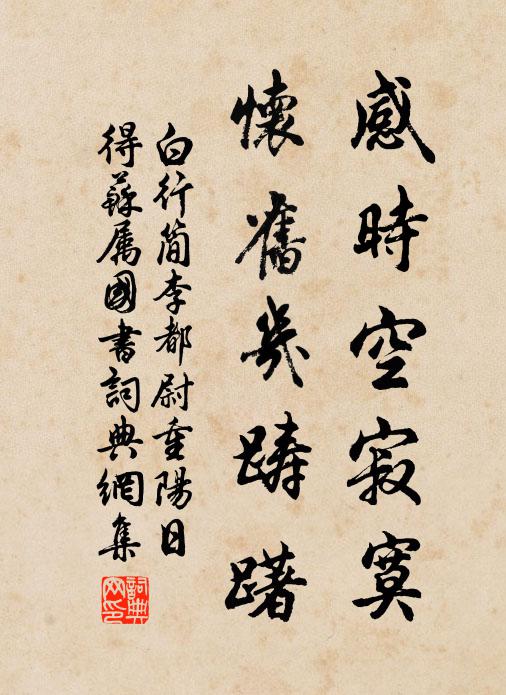 感時空寂寞
懷舊幾踌躇
白行簡李都尉重陽日
得蘇属國書詞典網集
詞典
网印